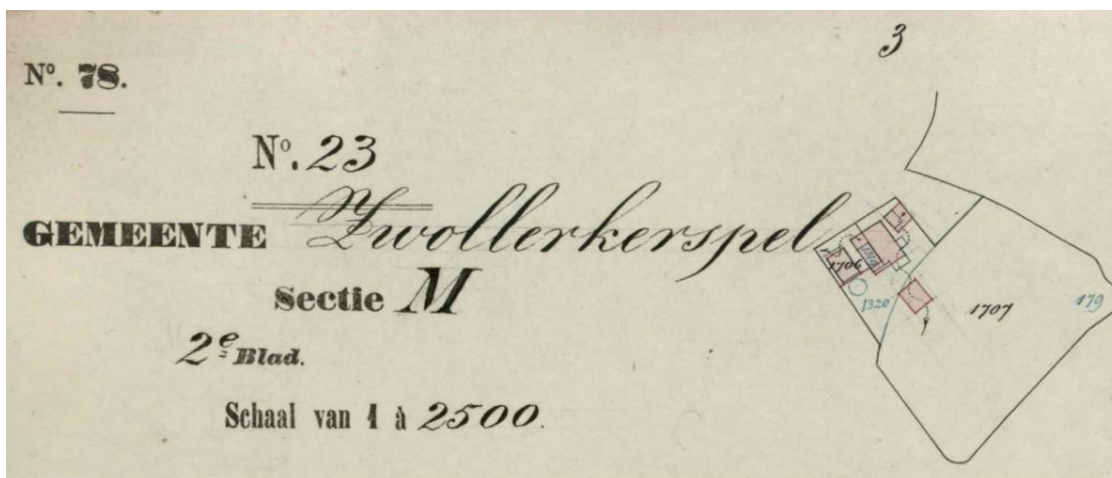 3
Nº. 78.
Nº. 23
GEMEENTE Zwollerkerspel
Sectie M
2e Blad.
Schaal van 1 à 2500.
1706
1320
1707
179